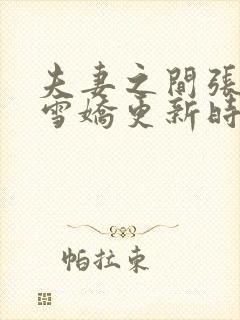 夫妻之間張
雪嬌更新時
帕拉東